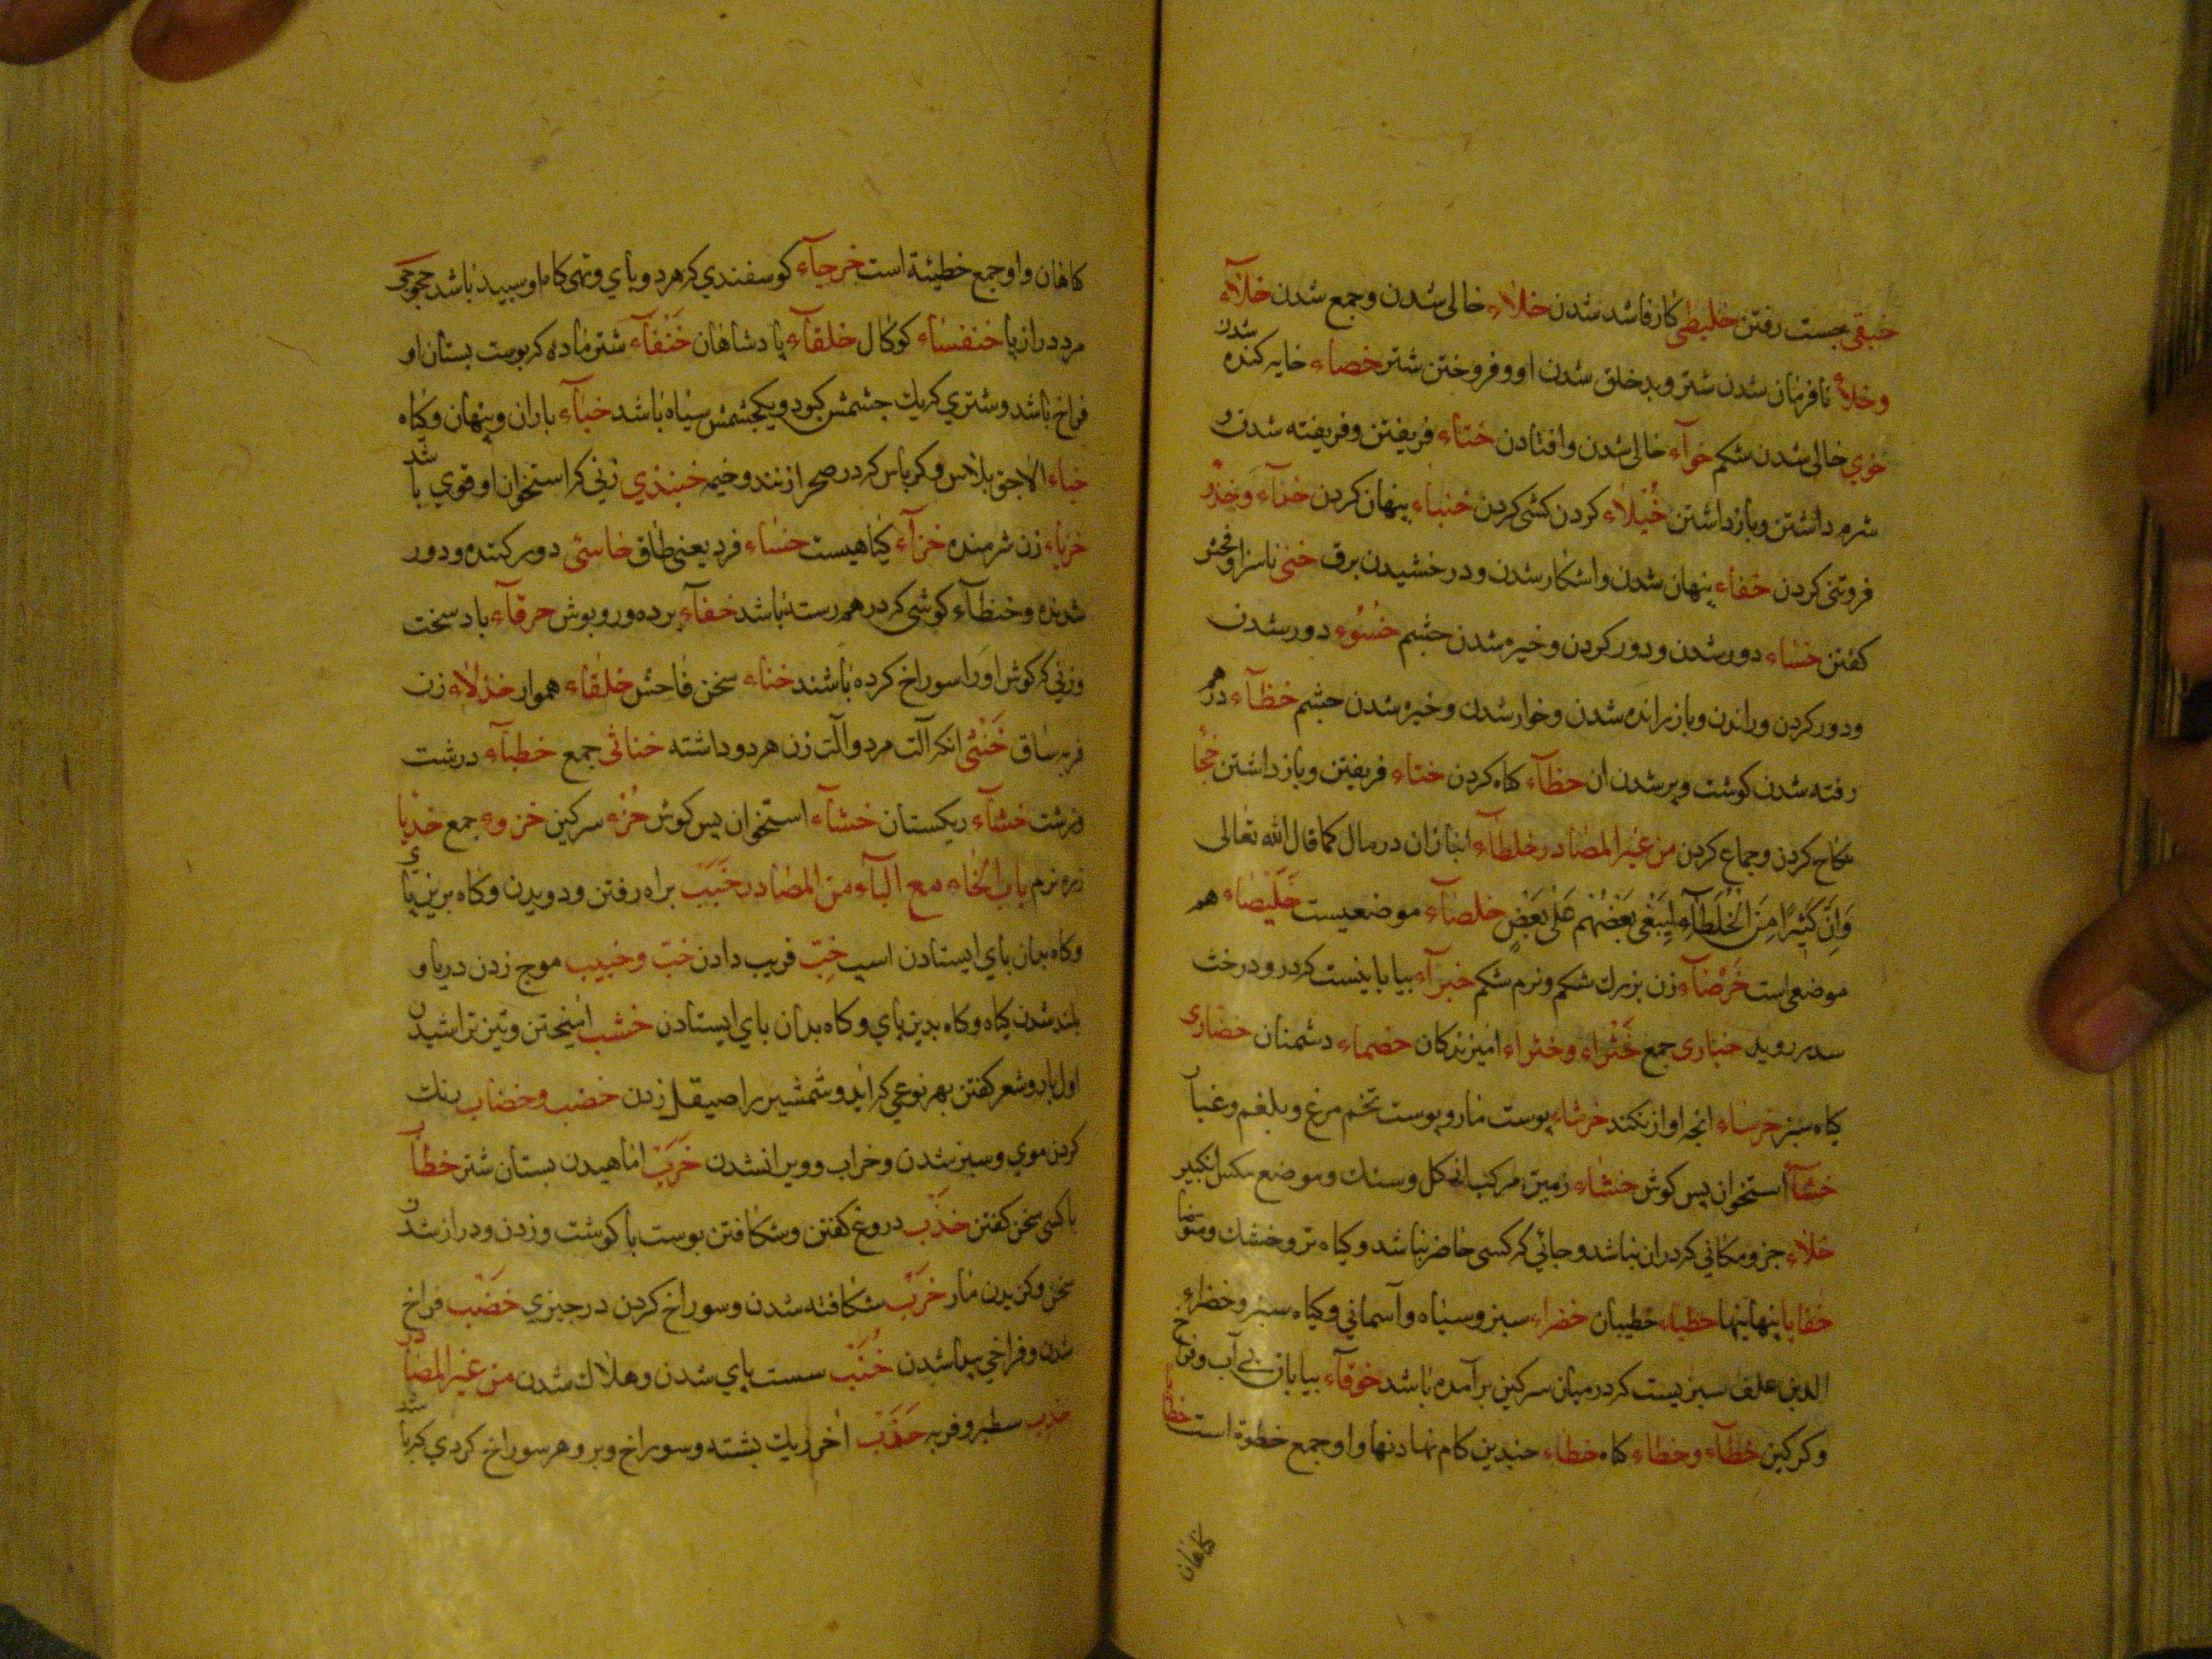 خبقی جست رفتن خلیطی کار فاسد شدن خلاء خالی شدن و جمع شدن خلاء
وخلاء نافرمان شدن شتر و بد خلق شدن او و فروختن شتر خصاء خایه کنده شدن
خوی خالی شدن شکم خوآء خالی شدن و افتادن ختاء فریفتن و فریفته شدن و
شرم داشتن و باز داشتن خیلاء کردن کشی کردن خنباء پنهان کردن خذآء وخذو
فروتنی کردن خفاء پنهان شدن و اشکار شدن و درخشیدن برق خنی ناسزا و فحش
کفتن خساء دور شدن و دور کردن و خیره شدن چشم خسوء دور شدن
و دور کردن و راندن و باز رانده شدن و خوار شدن و خیره شدن چشم خظآء درهم
رفته شدن کوشت و پر شدن ان خطآء کناه کردن ختاء فریفتن و باز داشتن خجا
نکاح کردن و جماع کردن من غیر المصادر خلطآء انبازان در مال کما قال الله تعالی
وَاِنَّ كَثِيرًا مِنَ الْخُلَطَآءِ لَيَبْغِي بَعْضُهُمْ عَلٰى بَعْضٍ خلصآء موضعیست خلیصاء هم
موضعی است خرضآء زن بزرك شکم و نرم شکم خبرآء بیابانیست که در و درخت
سدر روید خباری جمع خثراء وخثراء امیزندکان خصماء دشمنان خضاری
کیاه سبز خرساء انجه اواز نکند خرشاء پوست مار و پوست تخم مرغ و بلغم و غبار
خشآء استخوان پس کوش خشاء زمین مرکب از کل و سنك و موضع مکس انکبین
خلاء جز و مکانی که در ان نباشد و جائی که کسی حاضر نباشد و کیاه تر و خشك و متوضا
خفایا پنهانیها خطباء خطیبان خضراء سبز و سیاه و آسمانی و کیاه سبز و خضراء
الدمن علف سبزیست که در میان سرکین برآمده باشد خوقآء بیابان بی آب و فراخ
و کرکین خطآء وخطاء کناه خطاء جندین کام نهادنها و او جمع خطوة است خطایا
کاهان
کاهان و او جمع خطیئة است خرجآء کوسفندی که هر دو پای و تهی کاه او سپید باشد خجوجی
مرد دراز پا خنفساء کوکال خلقآء پادشاهان خنفآء شتر ماده که پوست پستان او
فراخ باشد و شتری که یك جشمش کبود و یکجشمش سیاه باشد خبآء باران و پنهان و کیاه
خباء الاجق پلاس و کرباس که در صحرا زنند و خیمه خبندی زنی که استخوان او قوی باشد
خزیاء زن شرمنده خزآء کیاهیست خساء فرد یعنی طاق خاسئ دور کننده و دور
شدنده و خنظآء کوشی که در هم رسته باشد خفآء پرده و روپوش خرقآء باد سخت
و زنی که کوش او را سوراخ کرده باشند خناء سخن فاحش خلقاء هموار خذلاء زن
فربه ساق خنثی انکه آلت مرد و آلت زن هر دو داشته خناثی جمع خطبآء درشت
درشت خشآء ریکستان خشآء استخوان پس کوش خزء سرکین خزوء جمع خدبا
زره نرم باب الخاء مع البآء من المصادر خبب براه رفتن و دویدن و کاه برین پای
و کاه بدان پای ایستادن اسپ خب فریب دادن خب وخبیب موج زدن دریا و
بلند شدن کیاه و کاه بدین پای و کاه بدان پای ایستادن خشب امیختن و تیز تراشیدن
اول بار و شعر کفتن بهر نوعی که اید و شمشیر را صیقل زدن خضب وخضاب رنك
کردن موی و سبز شدن و خراب و ویران شدن خرب اماهیدن پستان شتر خطاب
با کسی سخن کفتن خذب دروغ کفتن و شکافتن پوست با کوشت و زدن و دراز شدن
سخن و کزیدن مار خرب شکافته شدن و سوراخ کردن در جیزی خضب فراخ
شدن و فراخی پیدا شدن خنب سست پای شدن و هلاك شدن من غیر المصادر
خدب سطبر و فربه خذب اخر ریك پشته و سوراخ و بر و هر سوراخ کردی که باشد